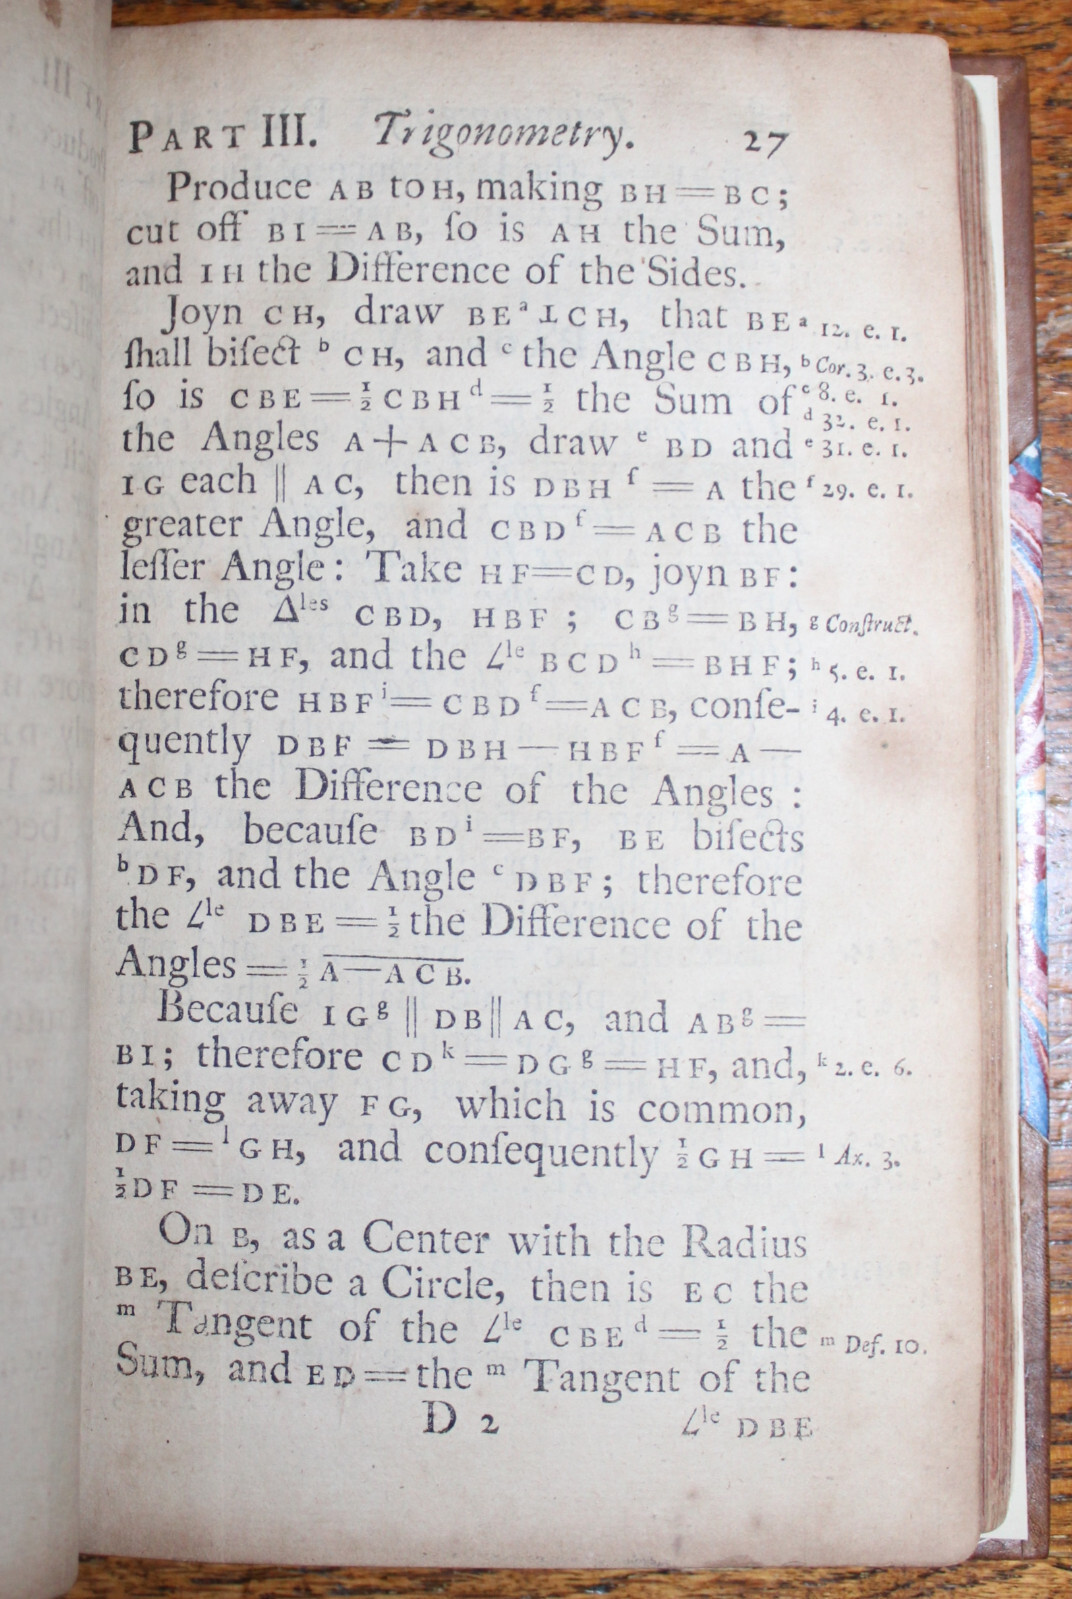 PART III. Trigonometry. 27
Produce AB to H, making BH = BC;
cut off BI = AB, ſo is AH the Sum,
and IH the Difference of the Sides.
Joyn CH, draw BE ᵃ ⊥ CH, that BE ᵃ 12. e. 1.
ſhall biſect ᵇ CH, and ᶜ the Angle CBH, ᵇ Cor. 3. e. 3.
ſo is CBE = ½ CBH ᵈ = ½ the Sum of ᶜ 8. e. 1.
ᵈ 32. e. 1.
the Angles A + ACB, draw ᵉ BD and ᵉ 31. e. 1.
IG each || AC, then is DBH ᶠ = A the ᶠ 29. e. 1.
greater Angle, and CBD ᶠ = ACB the
leſſer Angle: Take HF = CD, joyn BF:
in the Δˡᵉˢ CBD, HBF; CB ᵍ = BH, ᵍ Conſtruct.
CD ᵍ = HF, and the ∠ˡᵉ BCD ʰ = BHF; ʰ 5. e. 1.
therefore HBF ⁱ = CBD ᶠ = ACB, conſe- ⁱ 4. e. 1.
quently DBF = DBH — HBF ᶠ = A —
ACB the Difference of the Angles:
And, becauſe BD ⁱ = BF, BE biſects
ᵇ DF, and the Angle ᶜ DBF; therefore
the ∠ˡᵉ DBE = ½ the Difference of the
Angles = ½ A̅ ̅—̅ ̅A̅C̅B̅.
Becauſe IG ᵍ || DB || AC, and AB ᵍ =
BI; therefore CD ᵏ = DG ᵍ = HF, and, ᵏ 2. e. 6.
taking away FG, which is common,
DF = ˡ GH, and conſequently ½ GH = ˡ Ax. 3.
½ DF = DE.
On B, as a Center with the Radius
BE, deſcribe a Circle, then is EC the
ᵐ Tangent of the ∠ˡᵉ CBE ᵈ = ½ the ᵐ Def. 10.
Sum, and ED = the ᵐ Tangent of the
D 2 ∠ˡᵉ DBE